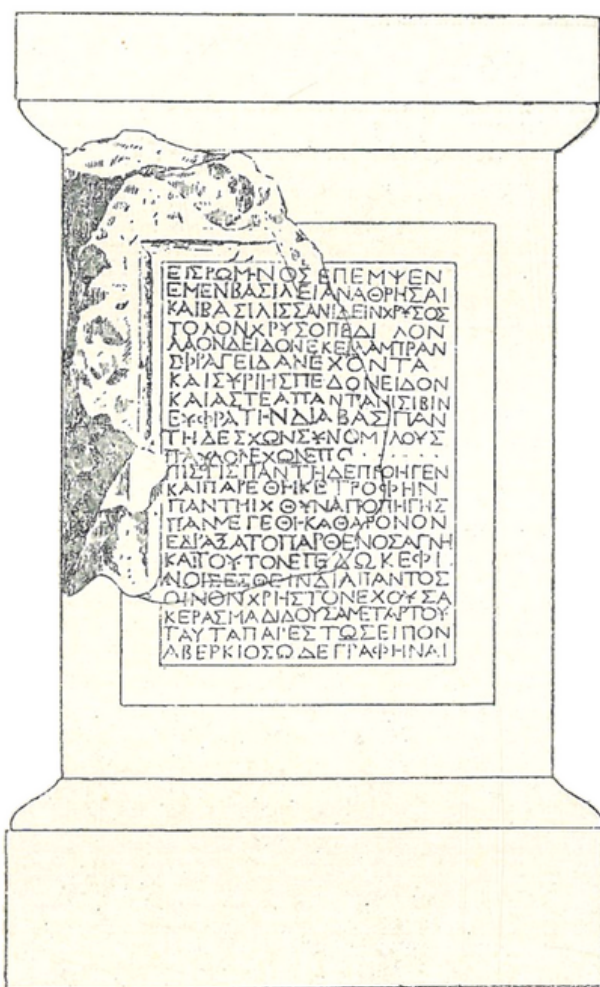 ΕΙΣ ΡΩΜΗΝ ΟΣ ΕΠΕΜΨΕΝ
ΕΜΕΝ ΒΑΣΙΛΕΙΑΝ ΑΘΡΗΣΑΙ
ΚΑΙ ΒΑΣΙΛΙΣΣΑΝ ΙΔΕΙΝ ΧΡΥΣΟΣ
ΤΟΛΟΝ ΧΡΥΣΟΠΕΔΙΛΟΝ
ΛΑΟΝ Δ ΕΙΔΟΝ ΕΚΕΙ ΛΑΜΠΡΑΝ
ΣΦΡΑΓΕΙΔΑΝ ΕΧΟΝΤΑ
ΚΑΙ ΣΥΡΙΗΣ ΠΕΔΟΝ ΕΙΔΟΝ
ΚΑΙ ΑΣΤΕΑ ΠΑΝΤΑ ΝΙΣΙΒΙΝ
ΕΥΦΡΑΤΗΝ ΔΙΑΒΑΣ ΠΑΝ
ΤΗ Δ ΕΣΧΩΝ ΣΥΝΟΜΙΛΟΥΣ
ΠΑΥΛΟΝ ΕΧΩΝ ΕΠΟ
ΠΙΣΤΙΣ ΠΑΝΤΗ ΔΕ ΠΡΟΗΓΕΝ
ΚΑΙ ΠΑΡΕΘΗΚΕ ΤΡΟΦΗΝ
ΠΑΝΤΗ ΙΧΘΥΝ ΑΠΟ ΠΗΓΗΣ
ΠΑΝΜΕΓΕΘΗ ΚΑΘΑΡΟΝ ΟΝ
ΕΔΡΑΞΑΤΟ ΠΑΡΘΕΝΟΣ ΑΓΝΗ
ΚΑΙ ΤΟΥΤΟΝ ΕΠΕΔΩΚΕ ΦΙ
ΛΟΙΣ ΕΣΘΕΙΝ ΔΙΑ ΠΑΝΤΟΣ
ΟΙΝΟΝ ΧΡΗΣΤΟΝ ΕΧΟΥΣΑ
ΚΕΡΑΣΜΑ ΔΙΔΟΥΣΑ ΜΕΤ ΑΡΤΟΥ
ΤΑΥΤΑ ΠΑΡΕΣΤΩΣ ΕΙΠΟΝ
ΑΒΕΡΚΙΟΣ ΩΔΕ ΓΡΑΦΗΝΑΙ